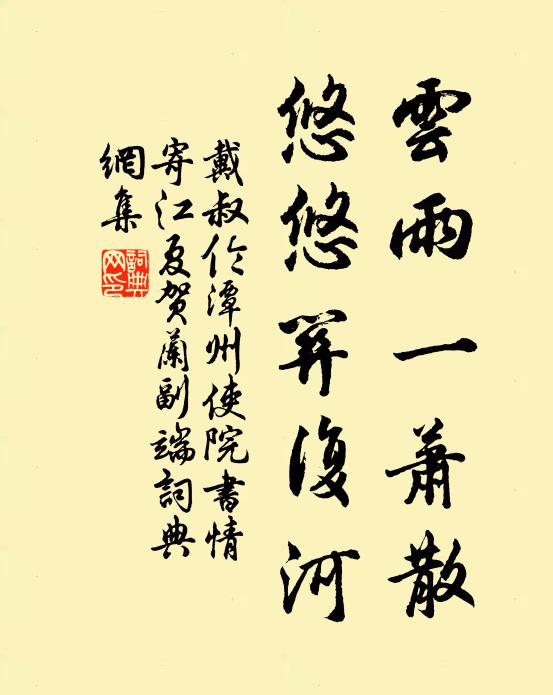 雲雨一蕭散
悠悠關復河
戴叔伦潭州使院書情
寄江夏賀蘭副端詞典
網集
詞典
网印